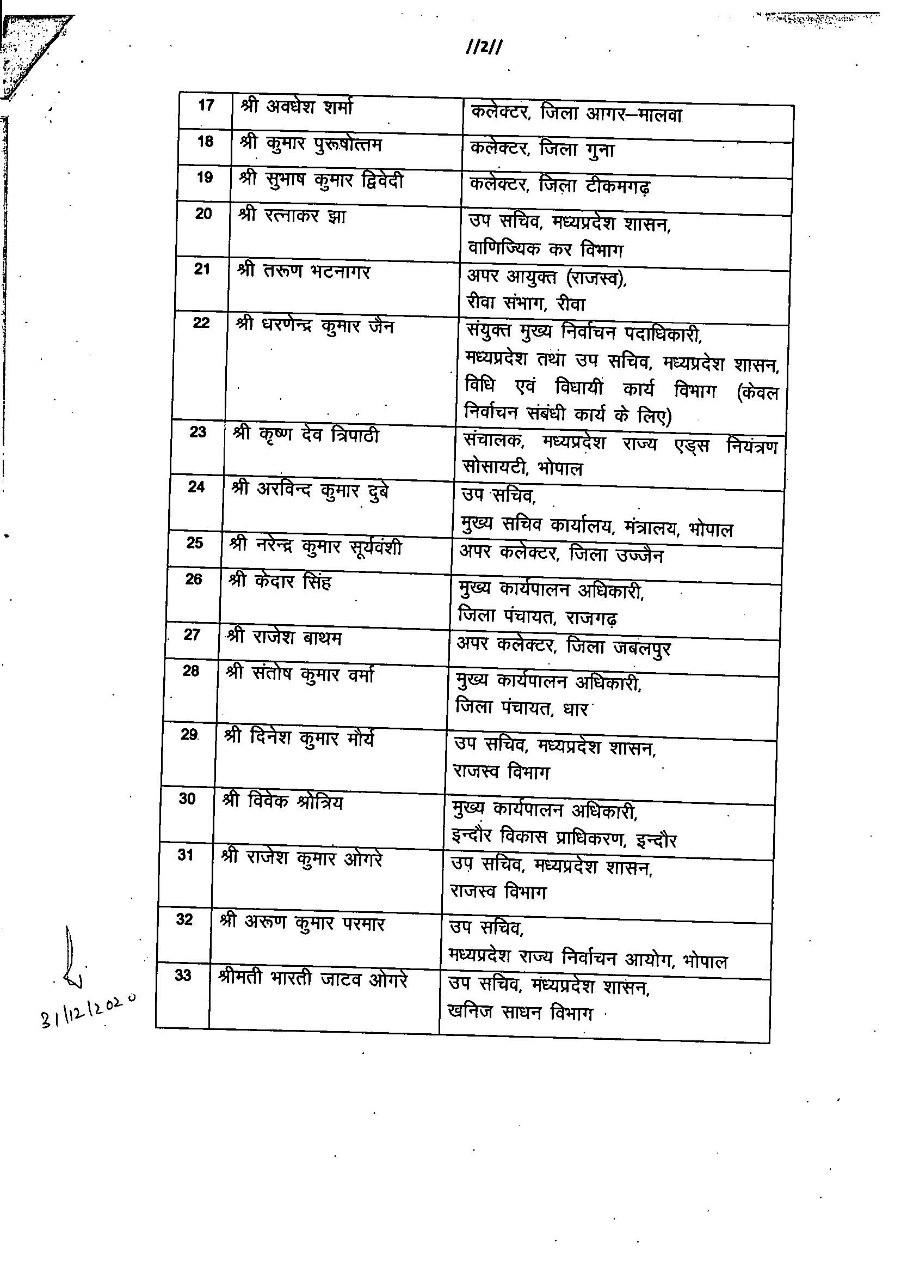 //2//
17 श्री अवधेश शर्मा कलेक्टर, जिला आगर–मालवा
18 श्री कुमार पुरूषोत्तम कलेक्टर, जिला गुना
19 श्री सुभाष कुमार द्विवेदी कलेक्टर, जिला टीकमगढ़
20 श्री रत्नाकर झा उप सचिव, मध्यप्रदेश शासन,
वाणिज्यिक कर विभाग
21 श्री तरूण भटनागर अपर आयुक्त (राजस्व),
रीवा संभाग, रीवा
22 श्री धरणेन्द्र कुमार जैन संयुक्त मुख्य निर्वाचन पदाधिकारी,
मध्यप्रदेश तथा उप सचिव, मध्यप्रदेश शासन,
विधि एवं विधायी कार्य विभाग (केवल
निर्वाचन संबंधी कार्य के लिए)
23 श्री कृष्ण देव त्रिपाठी संचालक, मध्यप्रदेश राज्य एड्स नियंत्रण
सोसायटी, भोपाल
24 श्री अरविन्द कुमार दुबे उप सचिव,
मुख्य सचिव कार्यालय, मंत्रालय, भोपाल
25 श्री नरेन्द्र कुमार सूर्यवंशी अपर कलेक्टर, जिला उज्जैन
26 श्री केदार सिंह मुख्य कार्यपालन अधिकारी,
जिला पंचायत, राजगढ़
27 श्री राजेश बाथम अपर कलेक्टर, जिला जबलपुर
28 श्री संतोष कुमार वर्मा मुख्य कार्यपालन अधिकारी,
जिला पंचायत, धार
29 श्री दिनेश कुमार मौर्य उप सचिव, मध्यप्रदेश शासन,
राजस्व विभाग
30 श्री विवेक श्रोत्रिय मुख्य कार्यपालन अधिकारी,
इन्दौर विकास प्राधिकरण, इन्दौर
31 श्री राजेश कुमार ओगरे उप सचिव, मध्यप्रदेश शासन,
राजस्व विभाग
32 श्री अरूण कुमार परमार उप सचिव,
मध्यप्रदेश राज्य निर्वाचन आयोग, भोपाल
33 श्रीमती भारती जाटव ओगरे उप सचिव, मध्यप्रदेश शासन,
खनिज साधन विभाग
31/12/2020